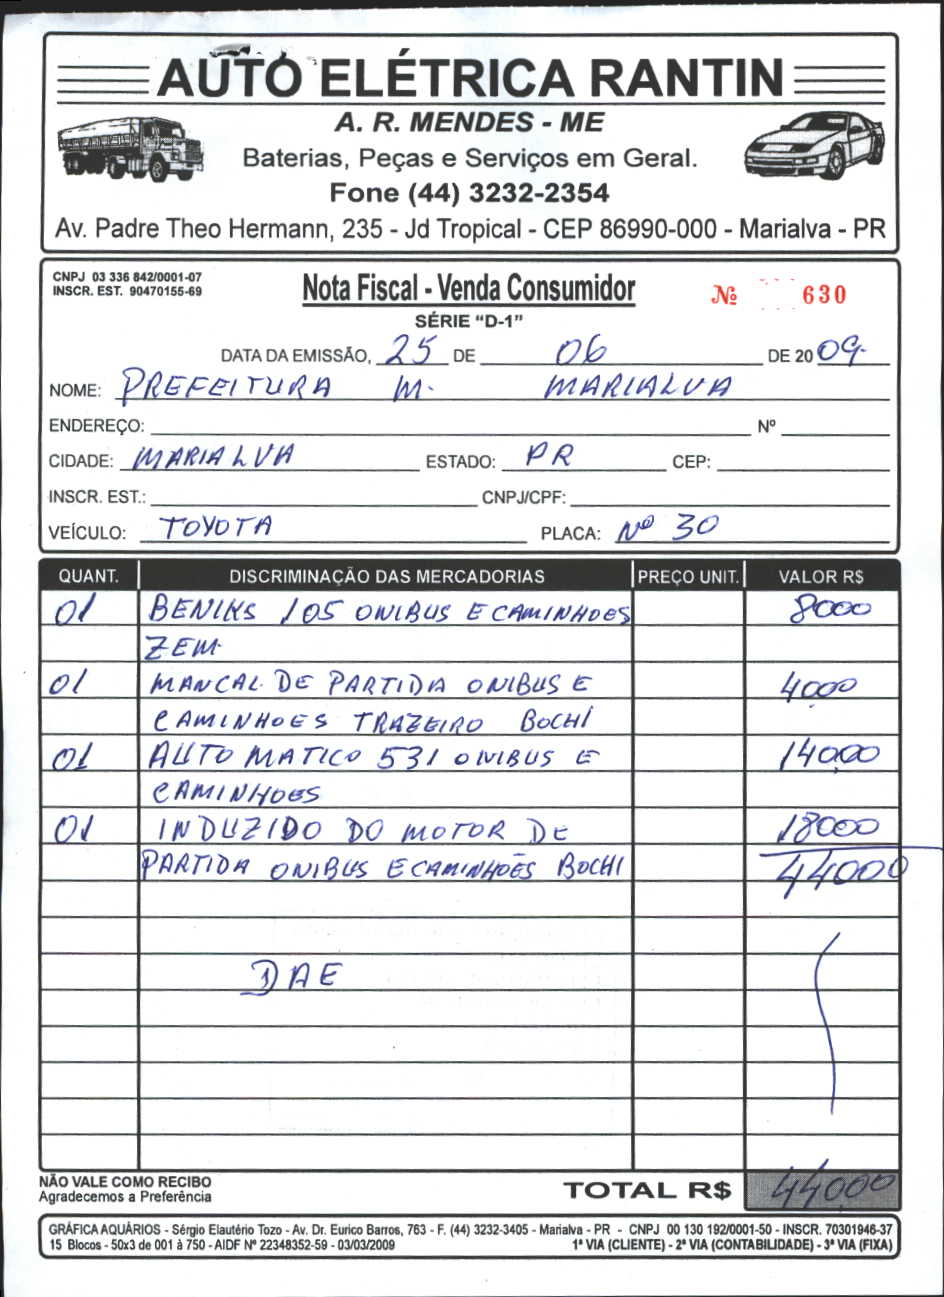 AUTO ELÉTRICA RANTIN
A. R. MENDES - ME
Baterias, Peças e Serviços em Geral.
Fone (44) 3232-2354
Av. Padre Theo Hermann, 235 - Jd Tropical - CEP 86990-000 - Marialva - PR
CNPJ 03 336 842/0001-07
INSCR. EST. 90470155-69
Nota Fiscal - Venda Consumidor
Nº 630
SÉRIE "D-1"
DATA DA EMISSÃO, 25 DE 06 DE 2009
NOME: PREFEITURA M. MARIALVA
ENDEREÇO: Nº
CIDADE: MARIALVA ESTADO: PR CEP:
INSCR. EST.: CNPJ/CPF:
VEÍCULO: TOYOTA PLACA: Nº 30
QUANT. DISCRIMINAÇÃO DAS MERCADORIAS PREÇO UNIT. VALOR R$
01 BENIKS 105 ONIBUS E CAMINHOES 8000
ZEM
01 MANCAL DE PARTIDA ONIBUS E 40,00
CAMINHOES TRAZEIRO BOCHI
01 AUTOMATICO 531 ONIBUS E 140,00
CAMINHOES
01 INDUZIDO DO MOTOR DE 18000
PARTIDA ONIBUS E CAMINHÕES BOCHI 44000
DAE
NÃO VALE COMO RECIBO
Agradecemos a Preferência
TOTAL R$ 440,00
GRÁFICA AQUÁRIOS - Sérgio Elautério Tozo - Av. Dr. Eurico Barros, 763 - F. (44) 3232-3405 - Marialva - PR - CNPJ 00 130 192/0001-50 - INSCR. 70301946-37
15 Blocos - 50x3 de 001 à 750 - AIDF Nº 22348352-59 - 03/03/2009 1ª VIA (CLIENTE) - 2ª VIA (CONTABILIDADE) - 3ª VIA (FIXA)